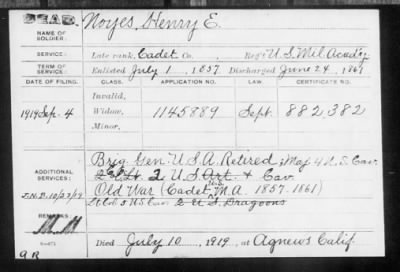 DEAD.
NAME OF SOLDIER: Noyes, Henry E.
SERVICE: Late rank, Cadet Co. Reg't U.S. Mil Acad'y
TERM OF SERVICE: Enlisted July 1, 1857 Discharged June 24, 1861
DATE OF FILING. CLASS. APPLICATION NO. LAW. CERTIFICATE NO.
Invalid,
1919 Sep. 4 Widow, 1145889 Sept. 882,382
Minor,
ADDITIONAL SERVICES: Brig Gen U.S.A. Retired; Maj 4 U.S. Cav.
2 U.S. Art. & Cav.
Old War (Cadet, M.A. 1857-1861)
Lt Col 5 U.S. Cav 2 U.S. Dragoons
REMARKS
M.M
Died July 10, 1919, at Agnews Calif.